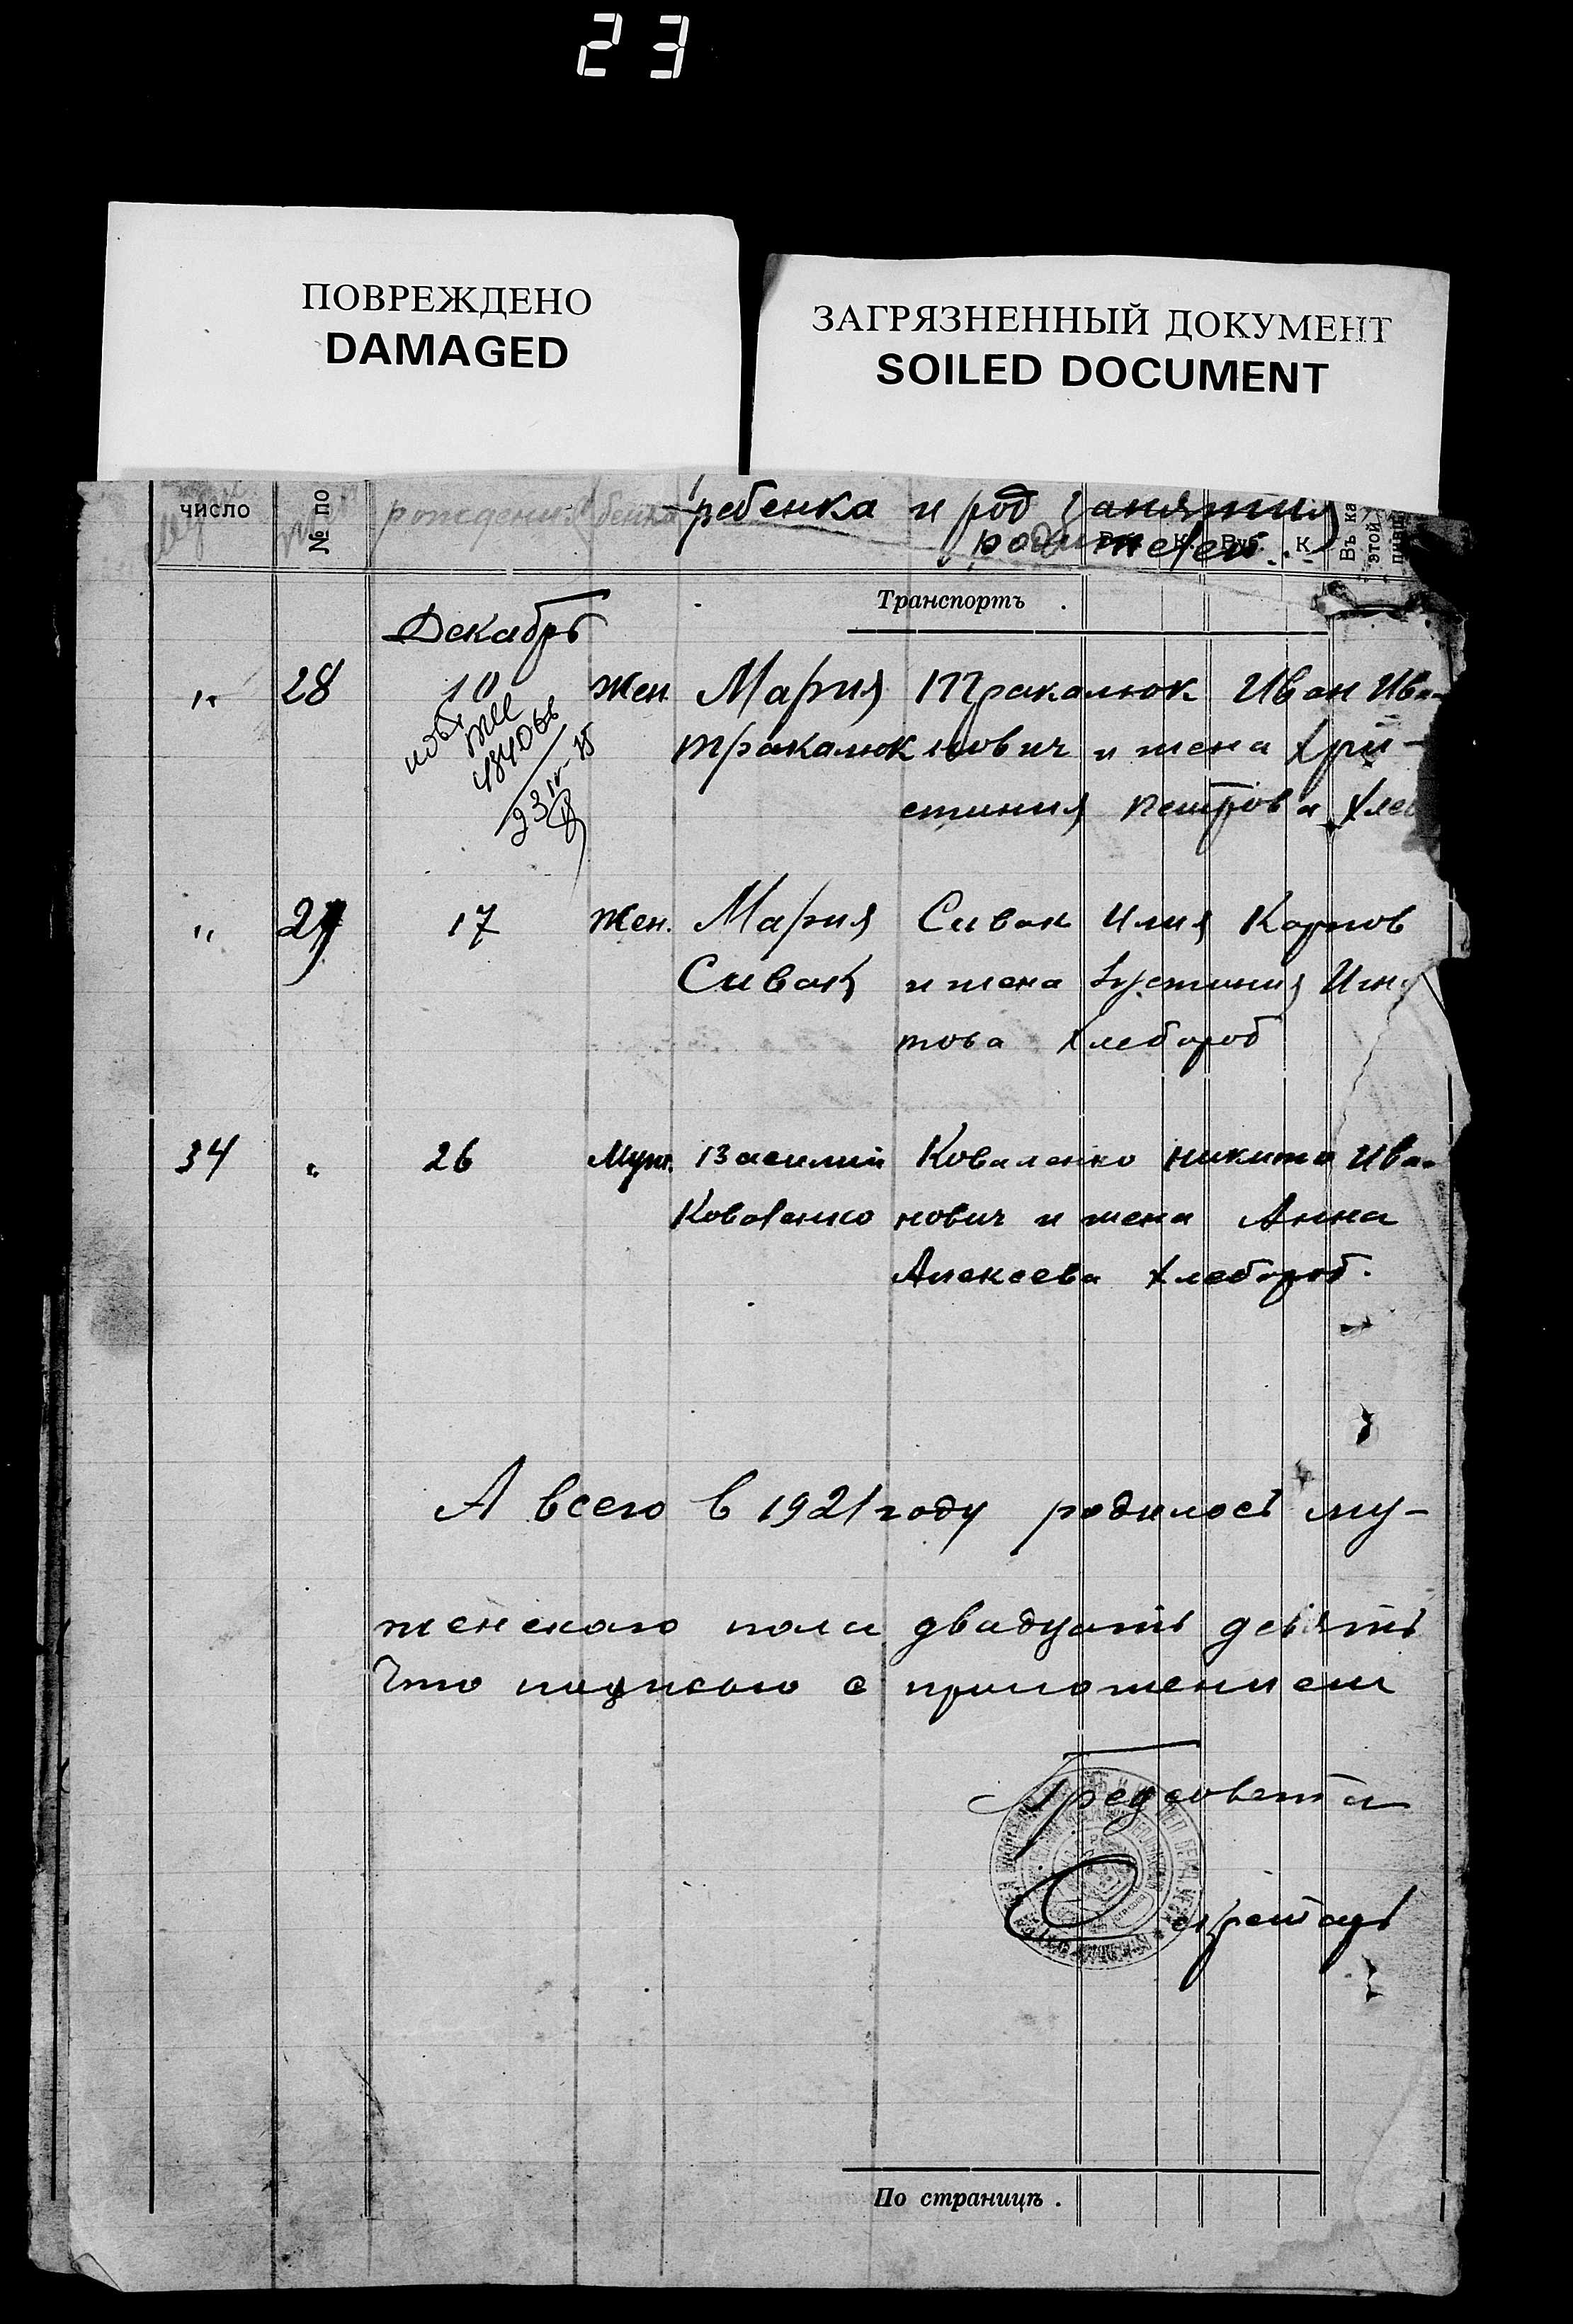 23
ПОВРЕЖДЕНО
DAMAGED
ЗАГРЯЗНЕННЫЙ ДОКУМЕНТ
SOILED DOCUMENT
число № по рождения ребенка и род занятия
родителей. Руб. К Въ ка этой
Транспортъ .
Декабрь
" 28 10 Жен Мария Тракалюк Иван Ива-
тракалюк нович и жена Хри-
стиния Петрова Хлеб
23 IV 75
" 29 17 Жен. Мария Сивак Илия Карпов
Сивак и жена Іустиния Игна
това Хлебороб
34 " 26 Муж. Василий Коваленко Никита Ива-
Коваленко нович и жена Анна
Алексеева Хлебороб.
А всего в 1921 году родилось му-
женского пола двадцать девять
Что подписью с приложением
Предсовета
Секретарь
По страницѣ .